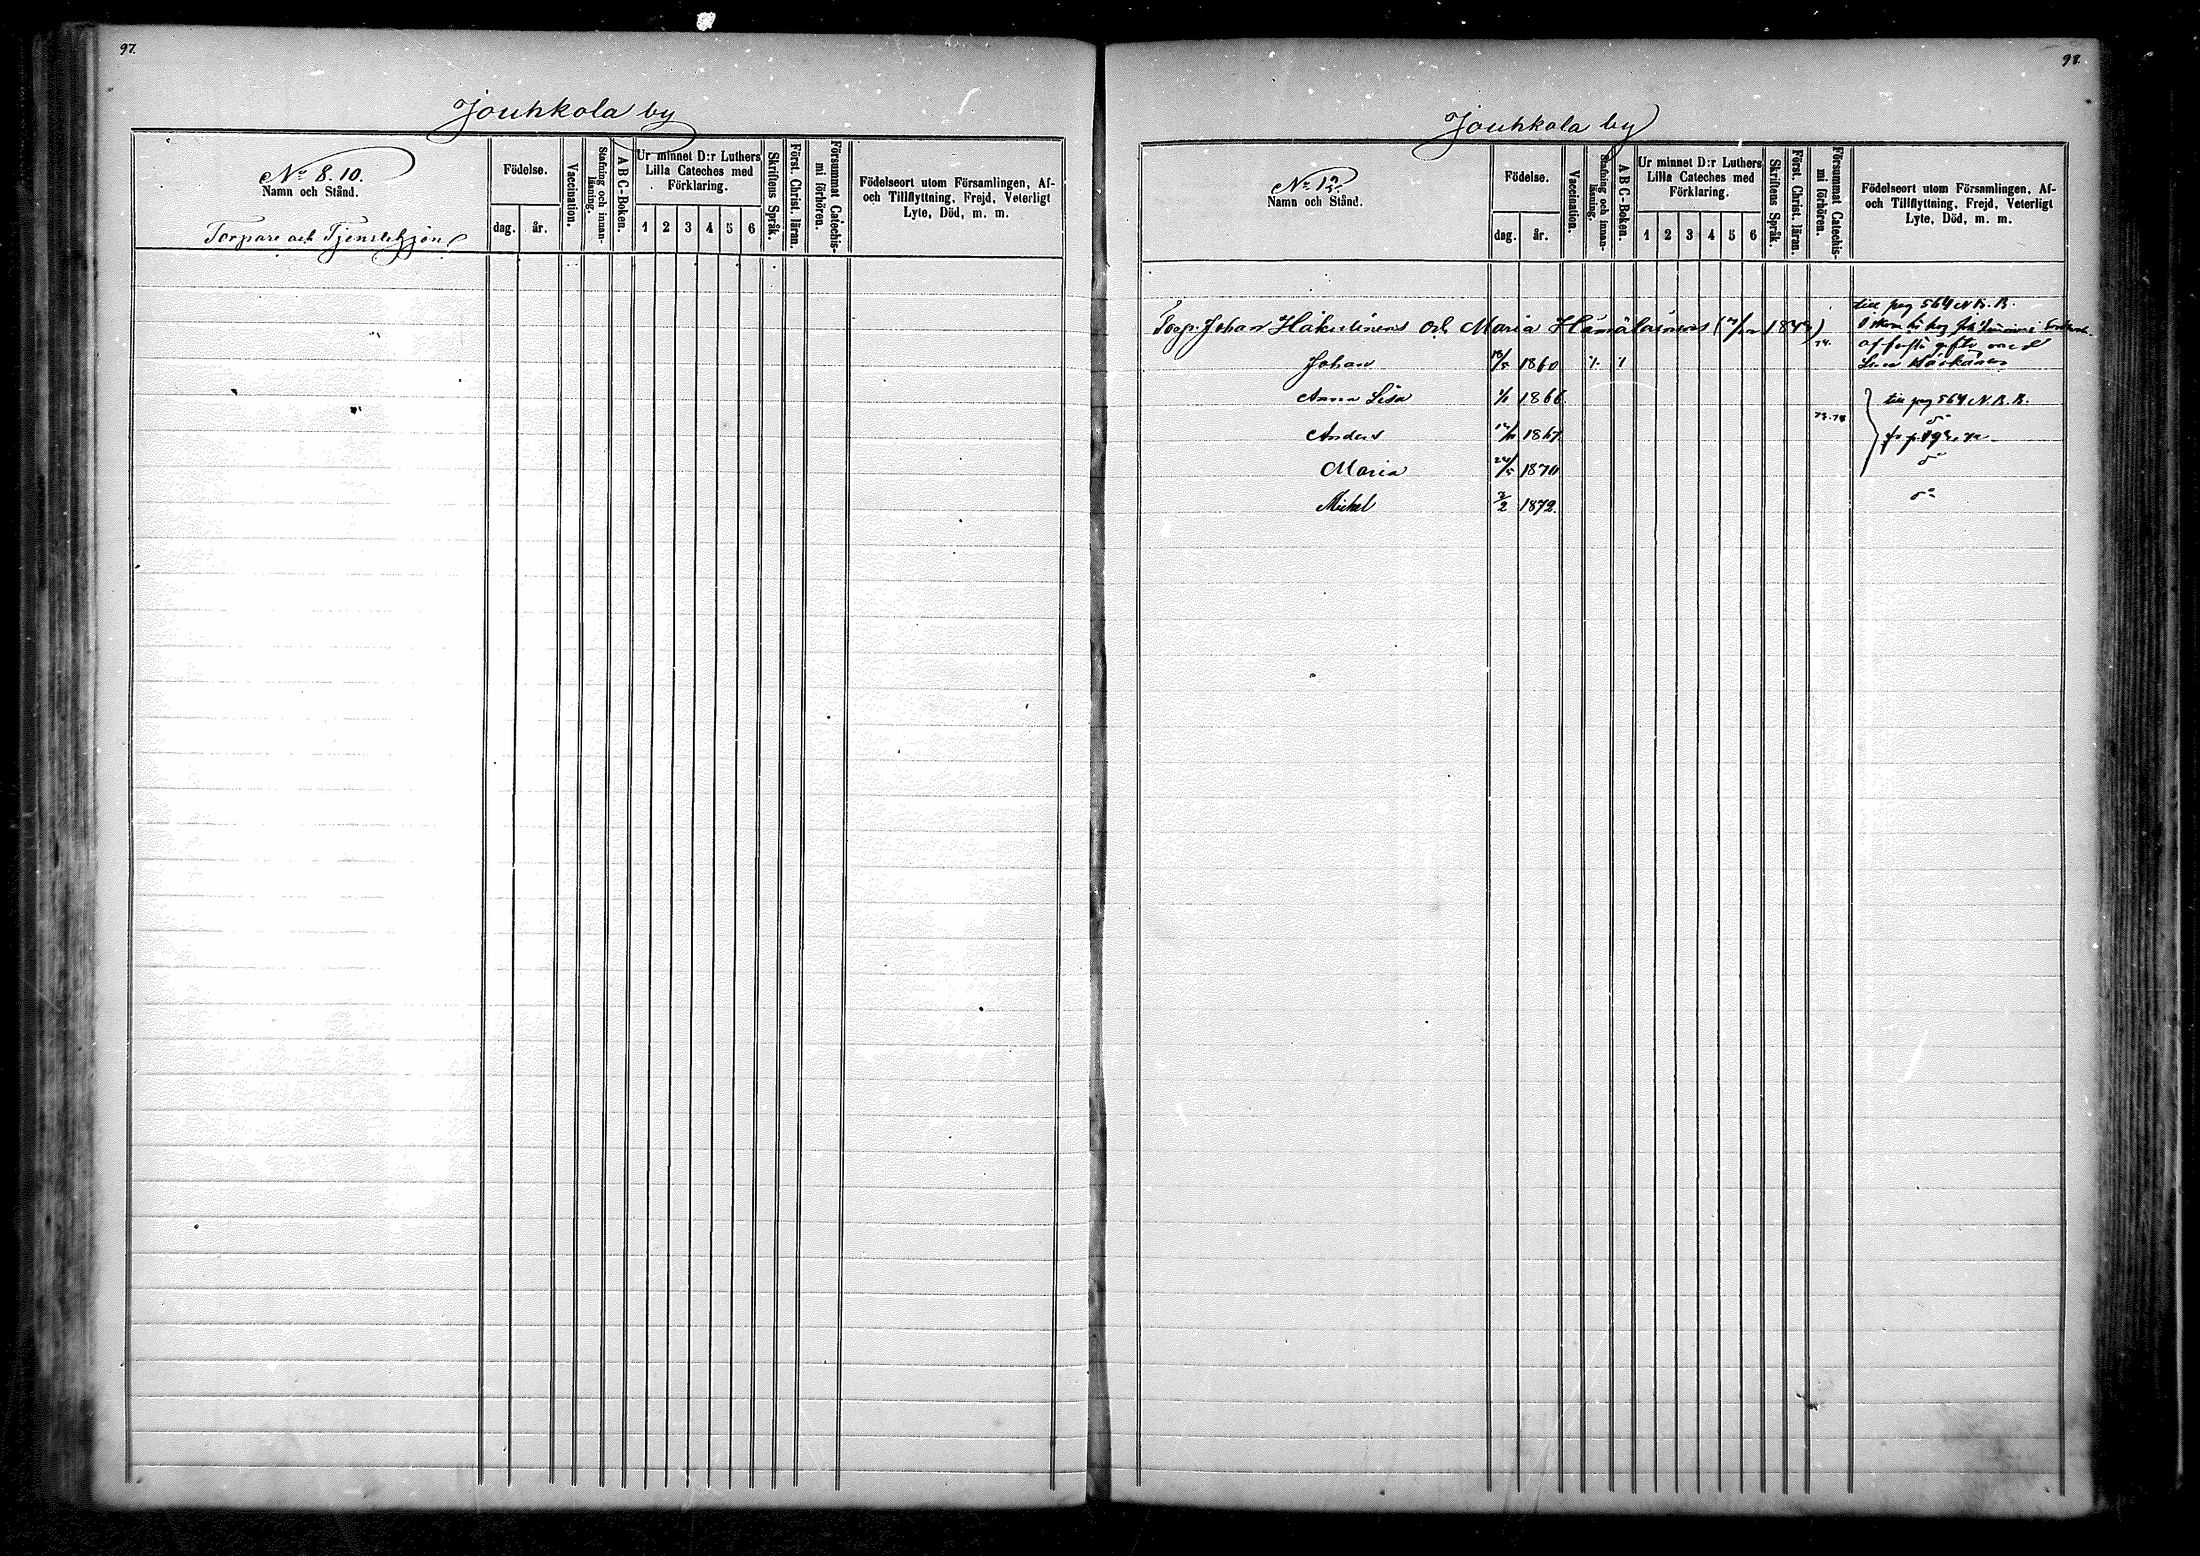 97.
Jouhkola by
No 8.10.
Namn och Stånd.
Torpare och Tjenstehjon
Födelse.
dag. år.
Vaccination.
Stafning och innan-
läsning.
A B C-Boken.
Ur minnet D:r Luthers
Lilla Cateches med
Förklaring.
1 2 3 4 5 6
Skriftens Språk.
Först. Christ. läran.
Försummat Catechis-
mi förhören.
Födelseort utom Församlingen, Af-
och Tillflyttning, Frejd, Veterligt
Lyte, Död, m. m.
98.
Jouhkola by
No 12.
Namn och Stånd.
Födelse.
dag. år.
Vaccination.
Stafning och innan-
läsning.
A B C-Boken.
Ur minnet D:r Luthers
Lilla Cateches med
Förklaring.
1 2 3 4 5 6
Skriftens Språk.
Först. Christ. läran.
Försummat Catechis-
mi förhören.
Födelseort utom Församlingen, Af-
och Tillflyttning, Frejd, Veterligt
Lyte, Död, m. m.
till pag 564 N.K.B.
Torp. Johan Hakulinens och Maria Hämäläinens
Johan 1860 74.
gifte med
Anna Lisa 1866 till pag 564 N.K.B.
Anders 1867 73.74
Maria 24/5 1870
Mickel 2/2 1872.